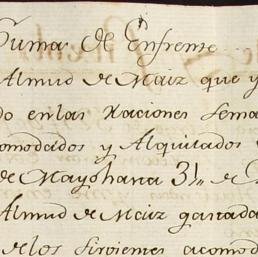 Suma de Enfrente
Almud de Maiz que y
do en las Raciones sema
omodados y Alquilados
de Mayohana 3½ de
Almud de Maiz gastada
de los sirvientes acomod